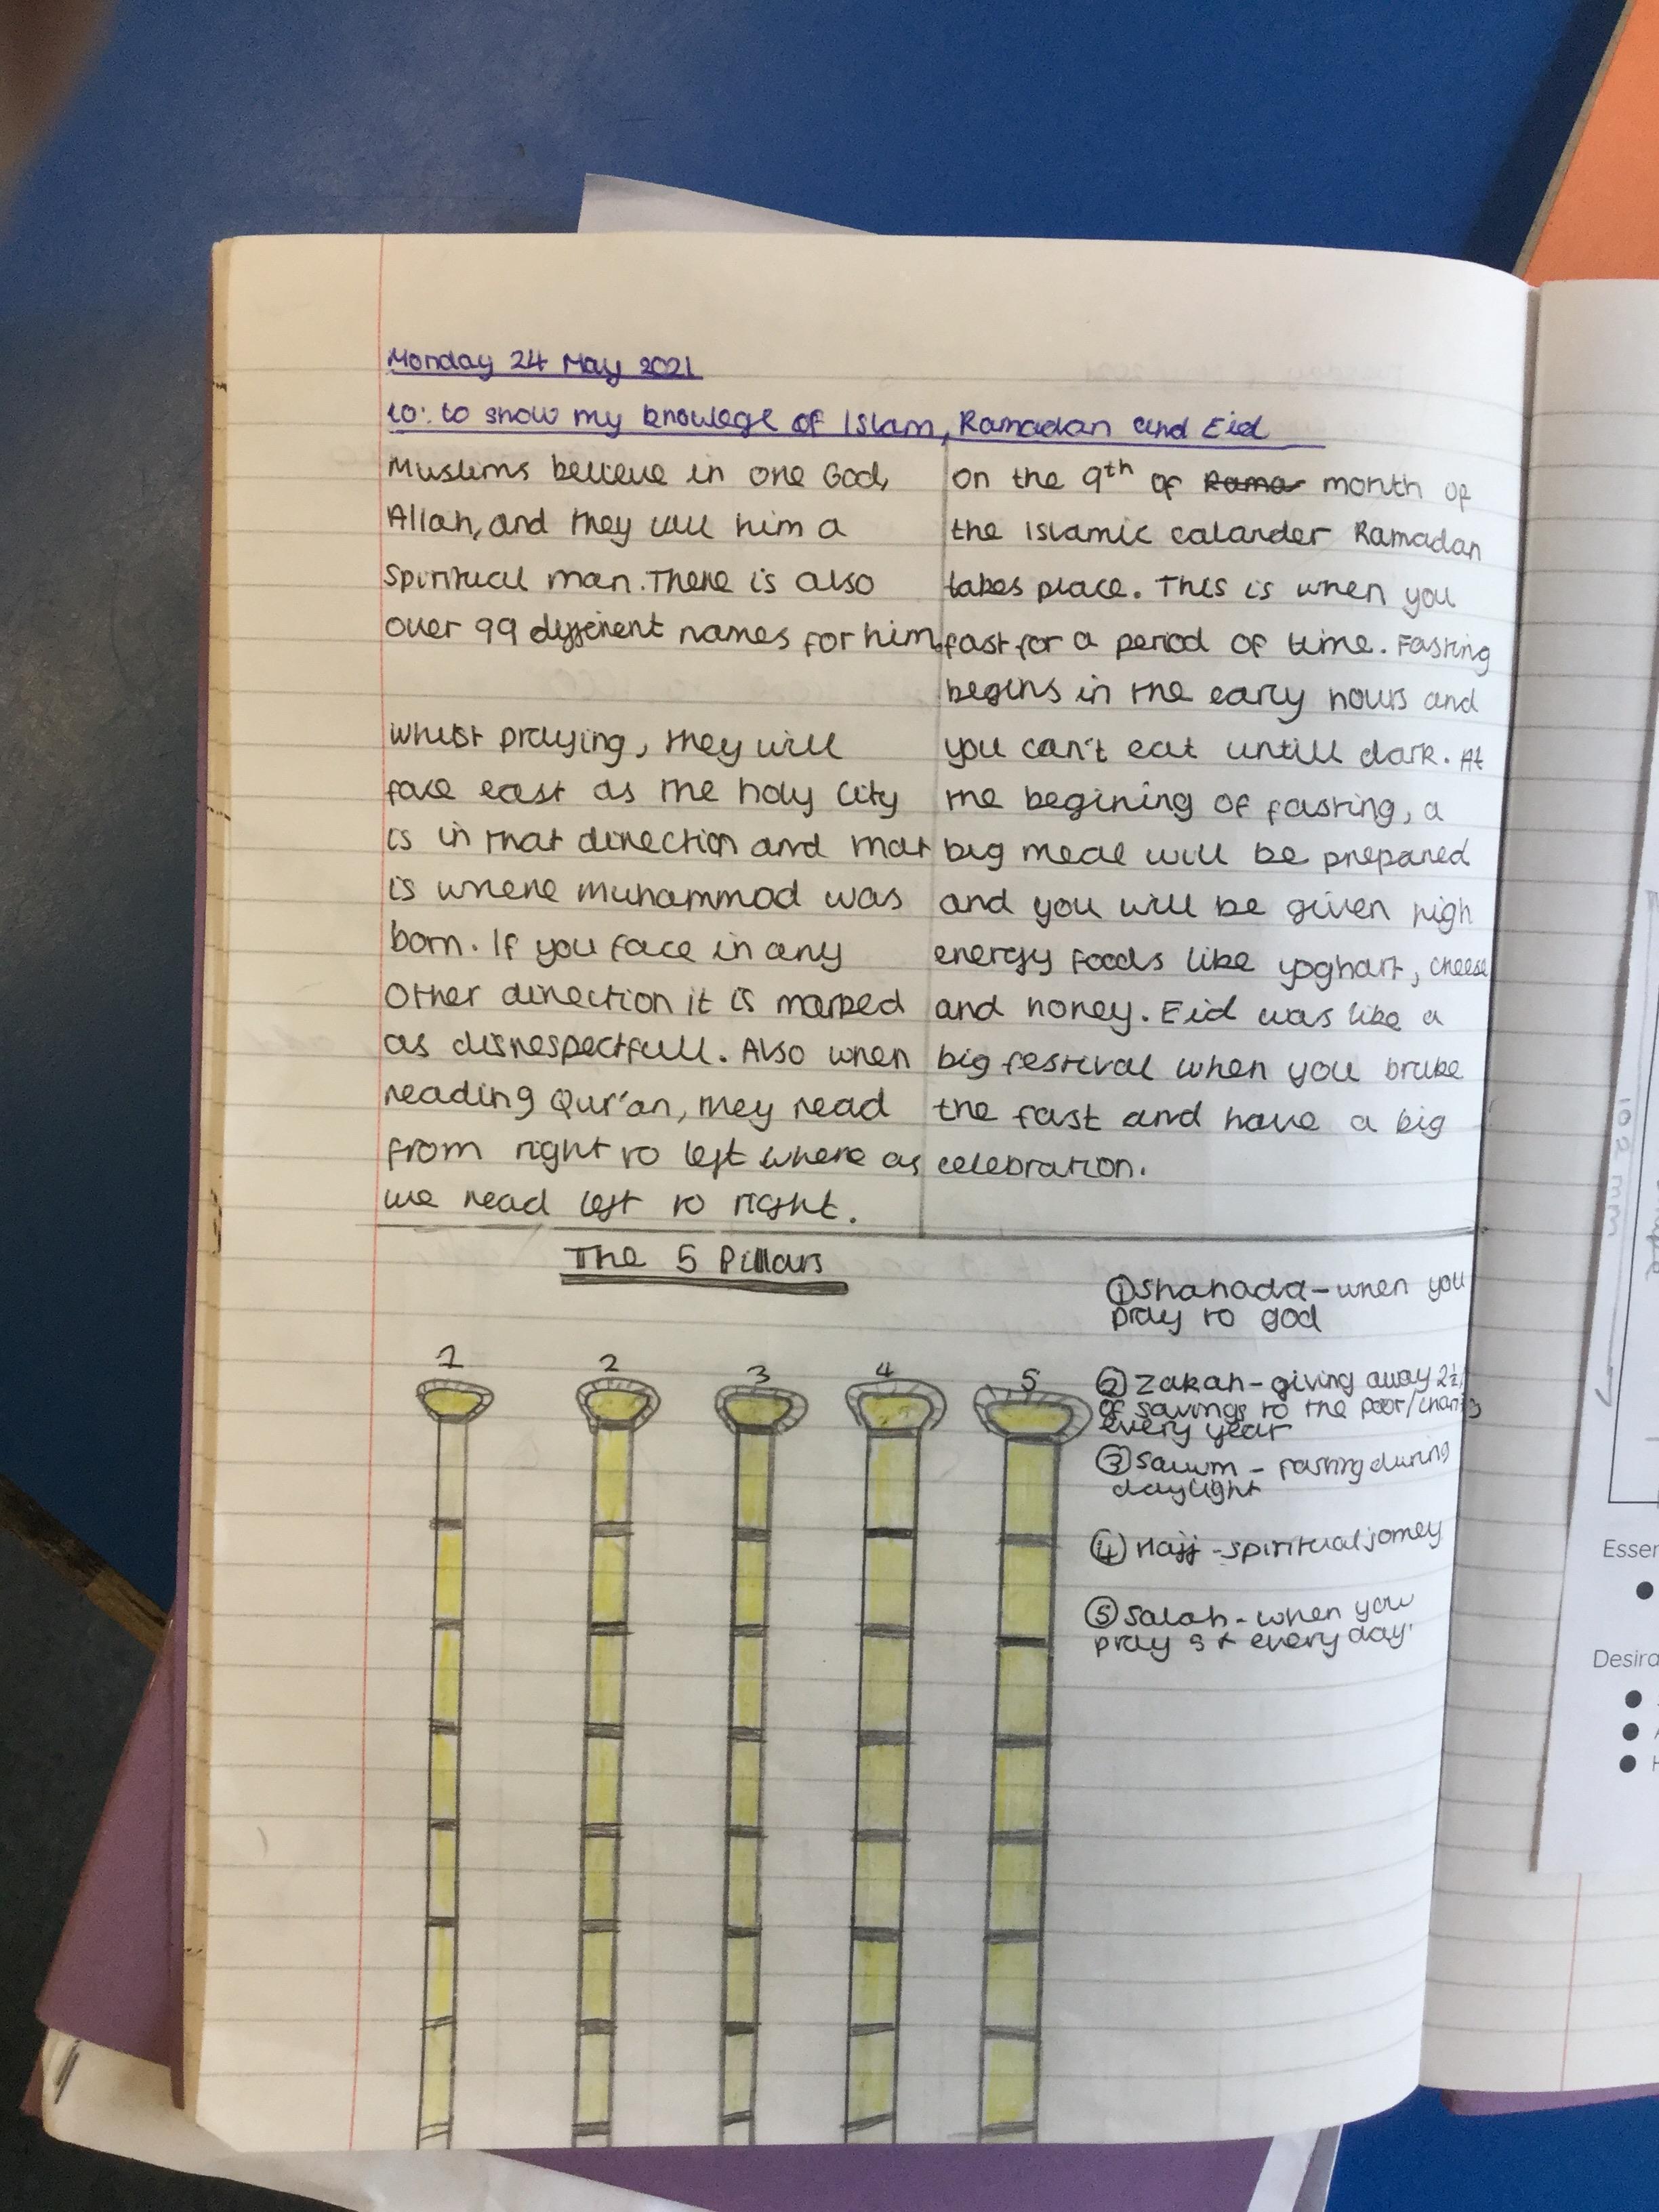 Monday 24 May 2021
LO: to show my knowlege of Islam, Ramadan and Eid
Muslims believe in one God,
Allah, and they call him a
Spiritual man. There is also
over 99 different names for him.
whilst praying, they will
face east as the holy city
is in that direction and that
is where muhammad was
born. If you face in any
other direction it is marked
as disrespectfull. Also when
reading Qur'an, they read
from right to left where as
we read left to right.
On the 9th of Rama month of
the Islamic calander Ramadan
takes place. This is when you
fast for a period of time. Fasting
begins in the early hours and
you can't eat untill dark. At
the begining of fasting, a
big meal will be prepared
and you will be given high
energy foods like yoghart, cheese
and honey. Eid was like a
big festival when you brake
the fast and have a big
celebration.
The 5 Pillars
1 2 3 4 5
① Shahada - when you
pray to god
② Zakah - giving away 2½
of savings to the poor/charity
every year
③ Sawm - fasting during
daylight
④ Hajj - spiritual jorney
⑤ Salah - when you
pray 5x every day.
102 mm
Esser
Desira